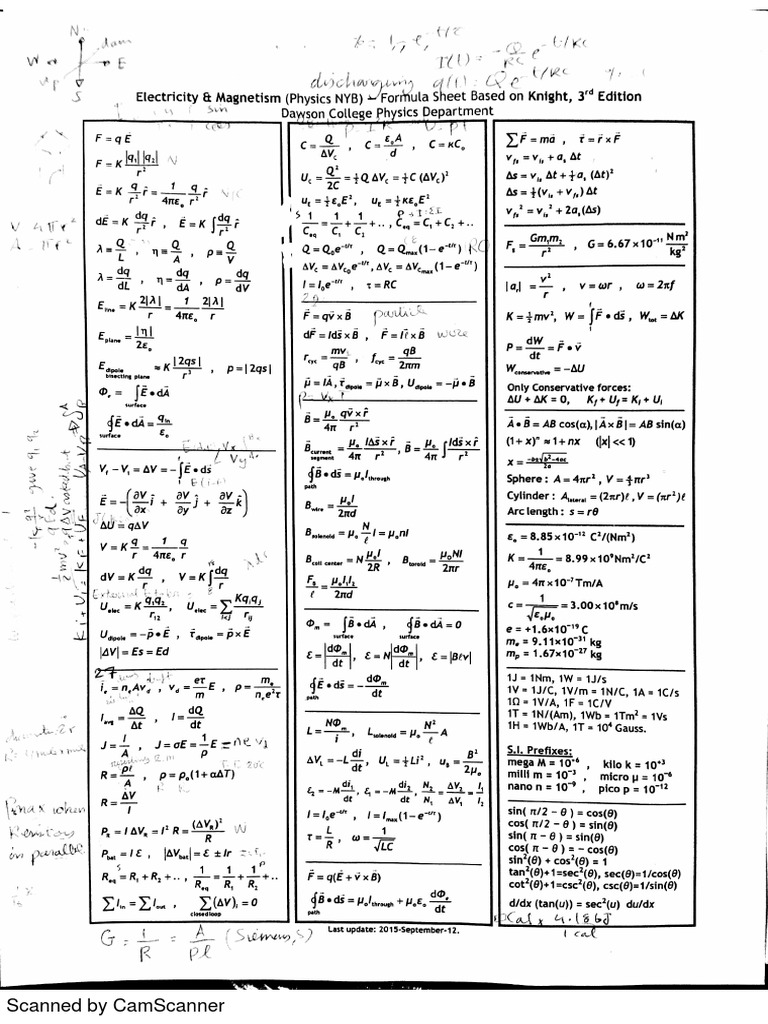 N
dam
W E
up
S
discharging q(t) = Qe^-t/RC
I(t) = -Q/RC e^-t/RC
Electricity & Magnetism (Physics NYB) – Formula Sheet Based on Knight, 3rd Edition
Dawson College Physics Department
F = qE⃗
F = K |q₁||q₂|/r² N
E⃗ = K q/r² r̂ = 1/4πε₀ q/r² r̂
dE⃗ = K dq/r² r̂ , E⃗ = K∫dq/r² r̂
λ = Q/L , η = Q/A , ρ = Q/V
λ = dq/dL , η = dq/dA , ρ = dq/dV
E_line = K 2|λ|/r = 1/4πε₀ 2|λ|/r
E_plane = |η|/2ε₀
E_dipole bisecting plane ≈ K |2qs|/r³ , p = |2qs|
Φₑ = ∫ E⃗•dA⃗
surface
∮E⃗•dA⃗ = q_in/ε₀
surface
V_f − V_i = ΔV = −∫E⃗•ds⃗
E⃗ = −(∂V/∂x î + ∂V/∂y ĵ + ∂V/∂z k̂)
ΔU = qΔV
V = K q/r = 1/4πε₀ q/r
dV = K dq/r , V = K∫dq/r
U_elec = K q₁q₂/r₁₂ , U_elec = Σ_i<j Kq_iq_j/r_ij
U_dipole = −p⃗•E⃗ , τ⃗_dipole = p⃗×E⃗
|ΔV| = Es = Ed
27
iₑ = nₑAv_d , v_d = eτ/m E , ρ = mₑ/nₑe²τ
I_avg = ΔQ/Δt , I = dQ/dt
J = I/A , J = σE = 1/ρ E
R = ρl/A , ρ = ρ₀(1+αΔT)
R = ΔV/I
P_R = IΔV_R = I²R = (ΔV_R)²/R W
P_bat = Iℰ , |ΔV_bat| = ℰ ± Ir
R_eq = R₁ + R₂ + .. , 1/R_eq = 1/R₁ + 1/R₂ + ..
ΣI_in = ΣI_out , Σ(ΔV)_i = 0
closed loop
G = 1/R = A/ρl (Siemens, S)
C = Q/ΔV_c , C = ε₀A/d , C = κC₀
U_c = Q²/2C = ½QΔV_c = ½C(ΔV_c)²
u_E = ½ε₀E² , u_E = ½κε₀E²
1/C_eq = 1/C₁ + 1/C₂ + .. , C_eq = C₁ + C₂ + ..
Q = Q₀e^-t/τ , Q = Q_max(1 − e^-t/τ) RC
ΔV_c = ΔV_C₀e^-t/τ , ΔV_c = ΔV_Cmax(1 − e^-t/τ)
I = I₀e^-t/τ , τ = RC
F⃗ = qv⃗×B⃗ particle
dF⃗ = Ids⃗×B⃗ , F⃗ = Iℓ⃗×B⃗ wire
r_cyc = mv/qB , f_cyc = qB/2πm
μ⃗ = IA⃗, τ⃗_dipole = μ⃗×B⃗, U_dipole = −μ⃗•B⃗
B⃗ = μ₀/4π qv⃗×r̂/r²
B⃗_current segment = μ₀/4π IΔs⃗×r̂/r² , B⃗ = μ₀/4π ∫Ids⃗×r̂/r²
∮B⃗•ds⃗ = μ₀I_through
path
B_wire = μ₀I/2πd
B_solenoid = μ₀ N/l I = μ₀nI
B_coil center = N μ₀I/2R , B_toroid = μ₀NI/2πr
F_B/ℓ = μ₀I₁I₂/2πd
Φ_m = ∫B⃗•dA⃗ , ∮B⃗•dA⃗ = 0
surface surface
ℰ = |dΦ_m/dt| , ℰ = N|dΦ_m/dt| , ℰ = |Bℓv|
∮E⃗•ds⃗ = −dΦ_m/dt
L = NΦ_m/i , L_solenoid = μ₀ N²/l A
ΔV_L = −L di/dt , U_L = ½Li² , u_B = B²/2μ₀
ℰ₂ = −M di₁/dt , ℰ₁ = −M di₂/dt , N₂/N₁ = ΔV₂/ΔV₁ = I₁/I₂
I = I₀e^-t/τ , I = I_max(1 − e^-t/τ)
τ = L/R , ω = 1/√LC
F⃗ = q(E⃗ + v⃗×B⃗)
∮B⃗•ds⃗ = μ₀I_through + μ₀ε₀ dΦₑ/dt
path
Last update: 2015-September-12.
ΣF⃗ = ma⃗ , τ⃗ = r⃗×F⃗
v_fs = v_is + a_s Δt
Δs = v_is Δt + ½a_s (Δt)²
Δs = ½(v_is + v_fs)Δt
v_fs² = v_is² + 2a_s(Δs)
F_g = Gm₁m₂/r² , G = 6.67×10⁻¹¹ N m²/kg²
|a_r| = v²/r , v = ωr , ω = 2πf
K = ½mv², W = ∫F⃗•ds⃗ , W_tot = ΔK
P = dW/dt = F⃗•v⃗
W_conservative = −ΔU
Only Conservative forces:
ΔU + ΔK = 0, K_f + U_f = K_i + U_i
A⃗•B⃗ = AB cos(α), |A⃗×B⃗| = AB sin(α)
(1 + x)ⁿ ≈ 1 + nx (|x| << 1)
x = −b±√b²−4ac/2a
Sphere : A = 4πr² , V = 4/3πr³
Cylinder : A_lateral = (2πr)ℓ , V = (πr²)ℓ
Arc length : s = rθ
ε₀ = 8.85×10⁻¹² C²/(Nm²)
K = 1/4πε₀ = 8.99×10⁹Nm²/C²
μ₀ = 4π×10⁻⁷Tm/A
c = 1/√ε₀μ₀ = 3.00×10⁸m/s
e = +1.6×10⁻¹⁹C
mₑ = 9.11×10⁻³¹ kg
m_p = 1.67×10⁻²⁷ kg
1J = 1Nm, 1W = 1J/s
1V = 1J/C, 1V/m = 1N/C, 1A = 1C/s
1Ω = 1V/A, 1F = 1C/V
1T = 1N/(Am), 1Wb = 1Tm² = 1Vs
1H = 1Wb/A, 1T = 10⁴ Gauss.
S.I. Prefixes:
mega M = 10⁺⁶ , kilo k = 10⁺³
milli m = 10⁻³ , micro μ = 10⁻⁶
nano n = 10⁻⁹ , pico p = 10⁻¹²
sin( π/2 − θ ) = cos(θ)
cos( π/2 − θ ) = sin(θ)
sin( π − θ ) = sin(θ)
cos( π − θ ) = − cos(θ)
sin²(θ) + cos²(θ) = 1
tan²(θ)+1=sec²(θ), sec(θ)=1/cos(θ)
cot²(θ)+1=csc²(θ), csc(θ)=1/sin(θ)
d/dx (tan(u)) = sec²(u) du/dx
Cal × 4.186J
1 cal
Pmax when
in parallel
Scanned by CamScanner